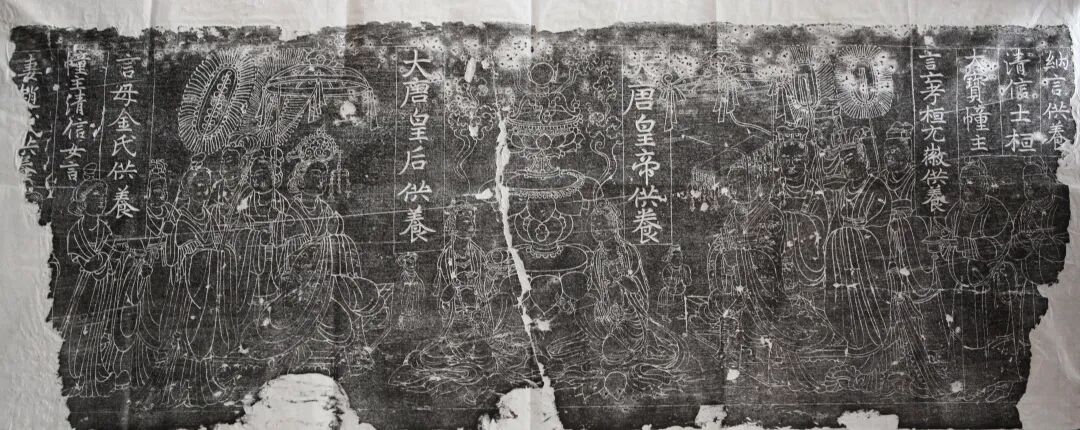 納言供養
清信士桓
大寶幢主
言亡孝桓元徽供養
大唐皇帝供養
大唐皇后供養
言母金氏供養
幢主清信女言
妻趙氏供養